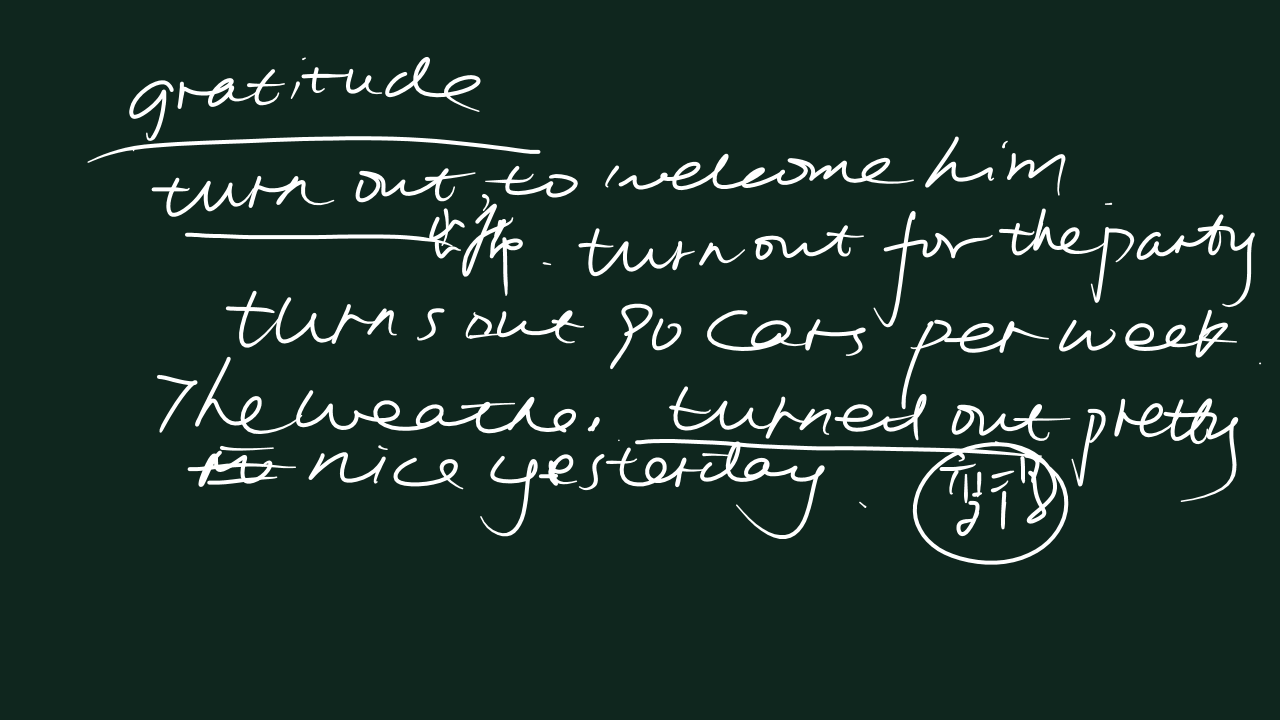 gratitude
turn out, to welcome him
turn out for the party
turns out 90 Cars per week
The weather turned out pretty
nice yesterday.